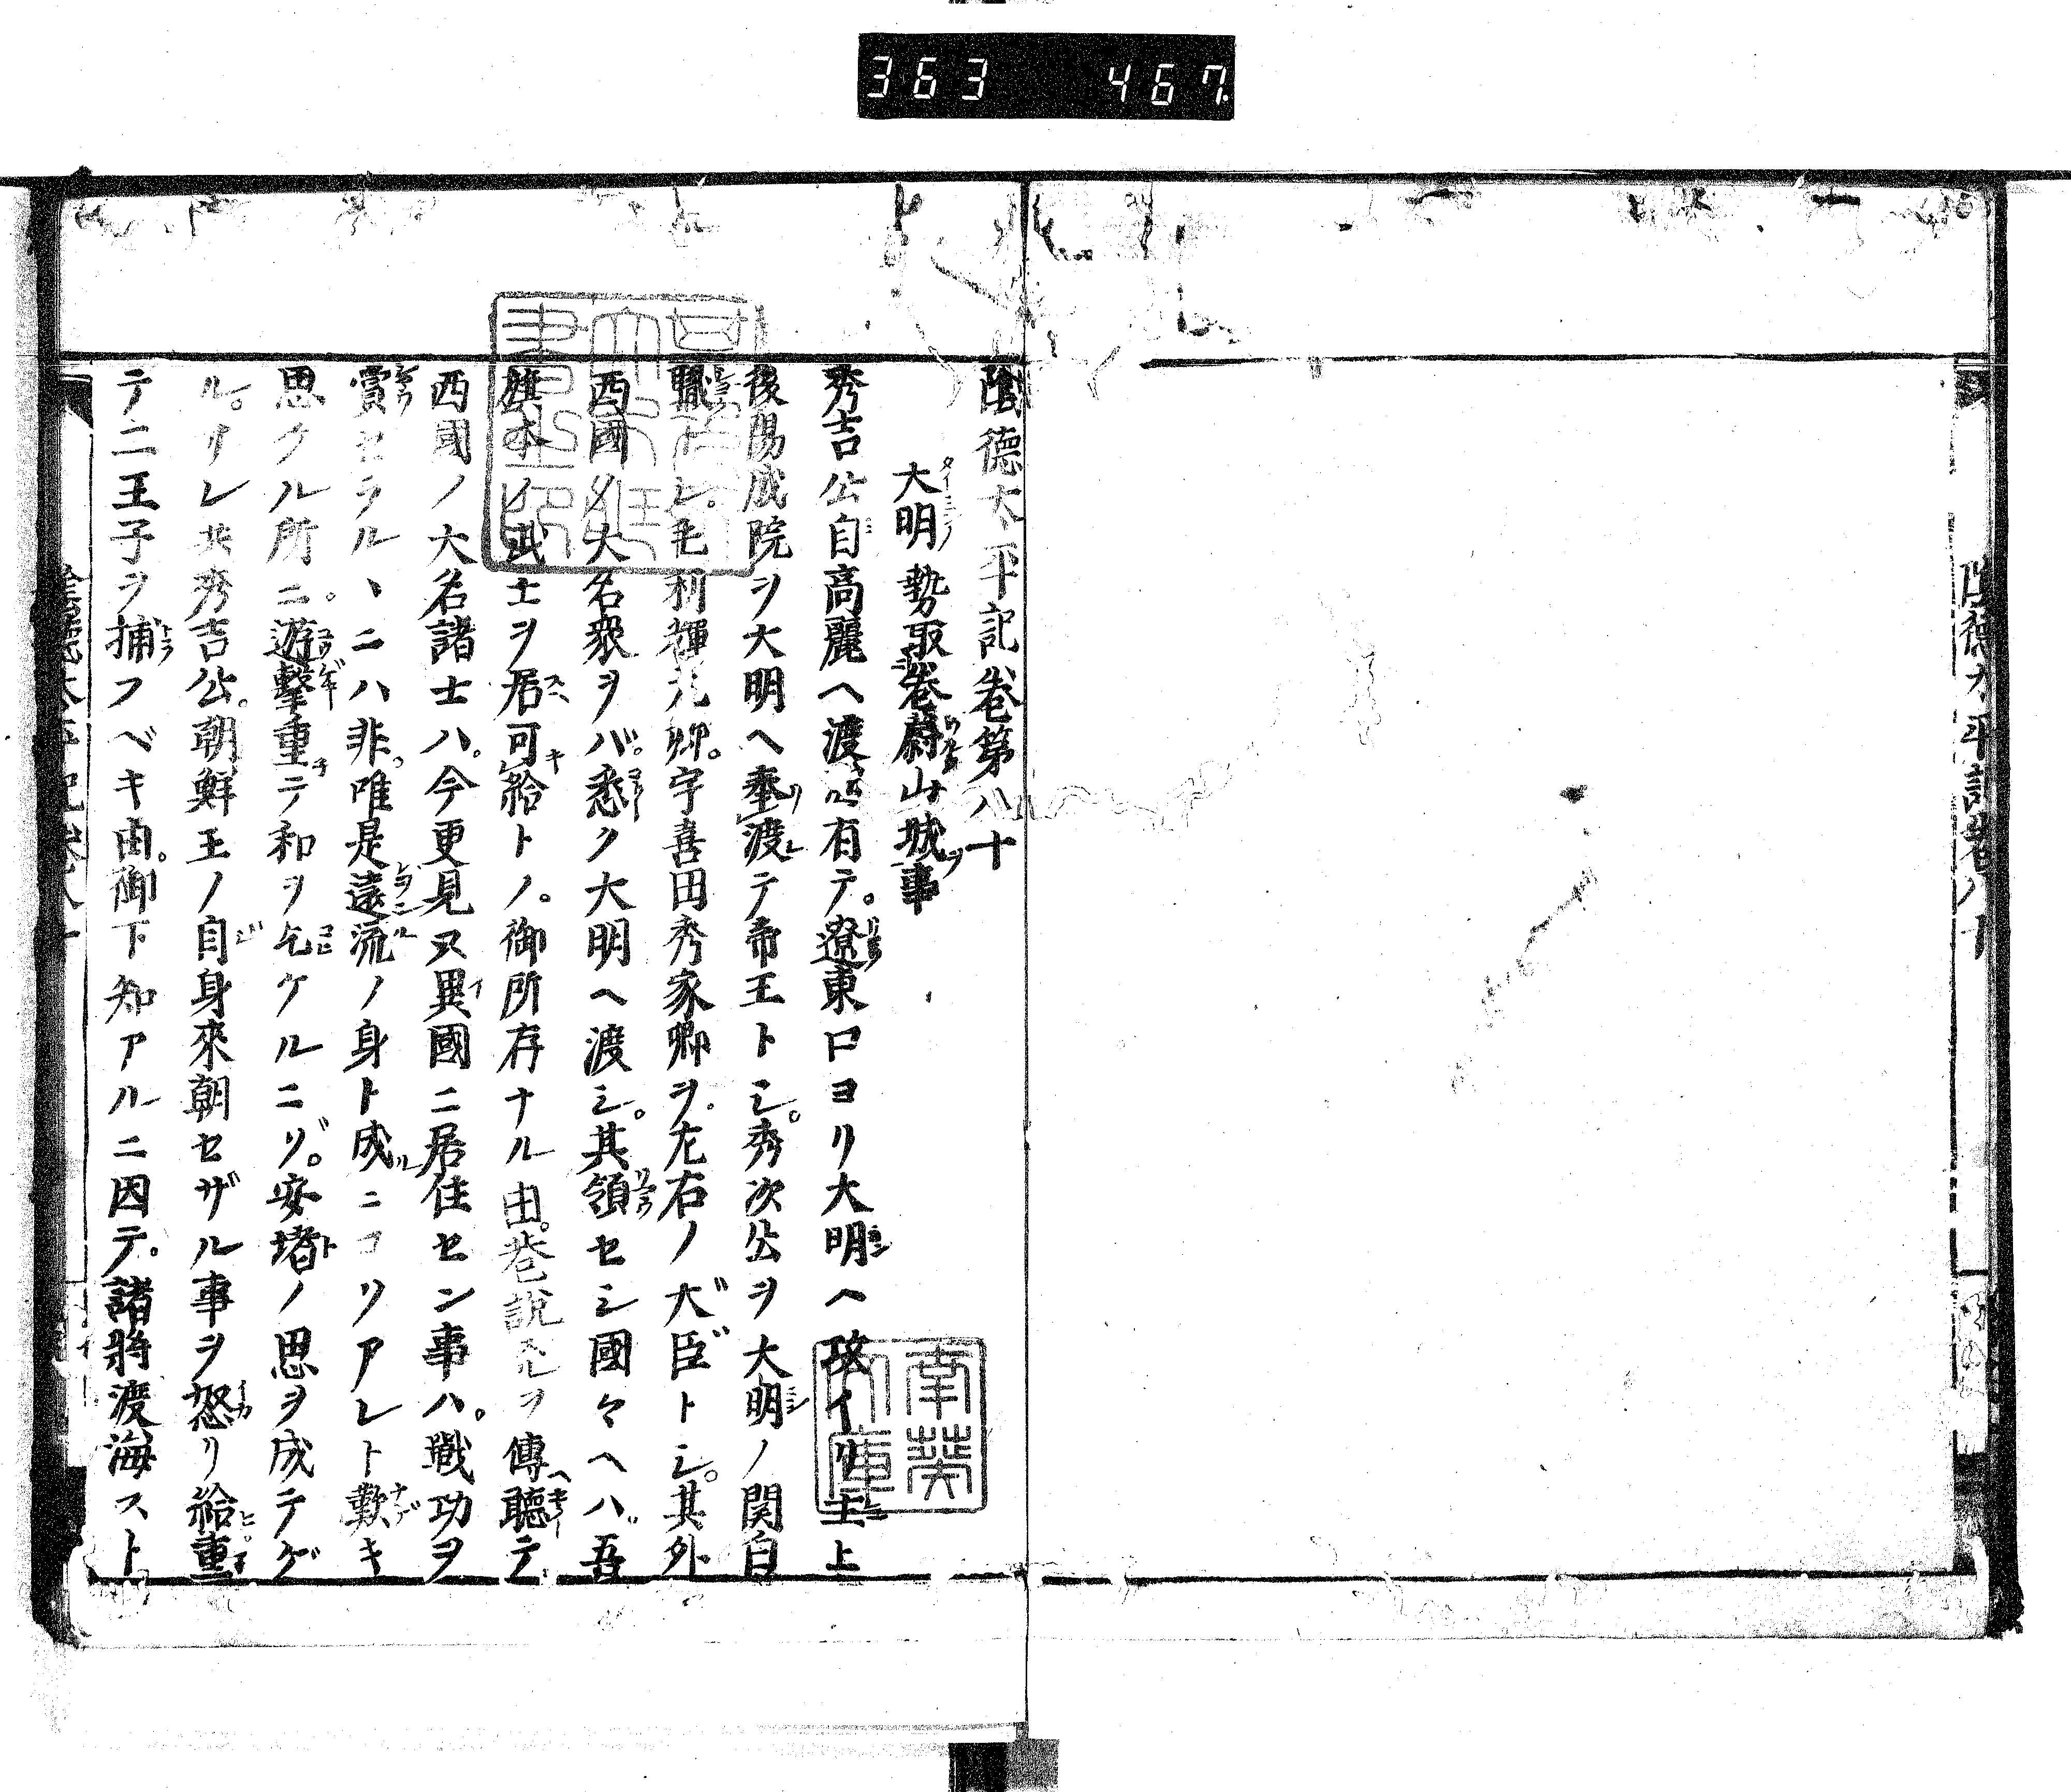 363 467
陰德太平記卷八十
陰德太平記卷第八十
大明勢取卷蔚山城事
秀吉公自高麗ヘ渡海有テ。遼東口ヨリ大明ヘ攻イリ主上
後陽成院ヲ大明ヘ奉渡テ帝王トシ。秀次公ヲ大明ノ関白
職トシ。毛利輝元卿。宇喜田秀家卿ヲ。左右ノ大臣トシ。其外
西國ノ大名衆ヲバ。悉ク大明ヘ渡シ。其領セシ國々ヘハ吾
旗本ノ武士ヲ居可給トノ。御所存ナル由。巷說アルヲ傳聽テ
西國ノ大名諸士ハ。今更見ヌ異國ニ居住セン事ハ。戰功ヲ
賞セラルヽニハ非。唯是遠流ノ身ト成ニコソアレト歎キ
思フル所ニ。遊擊重テ和ヲ乞ケルニゾ。安堵ノ思ヲ成テゲ
ル。サレ共秀吉公。朝鮮王ノ自身來朝セザル事ヲ怒リ給重
テ二王子ヲ捕フベキ由。御下知アルニ因テ。諸將渡海スト
陰德太平記卷八十
南葵文庫